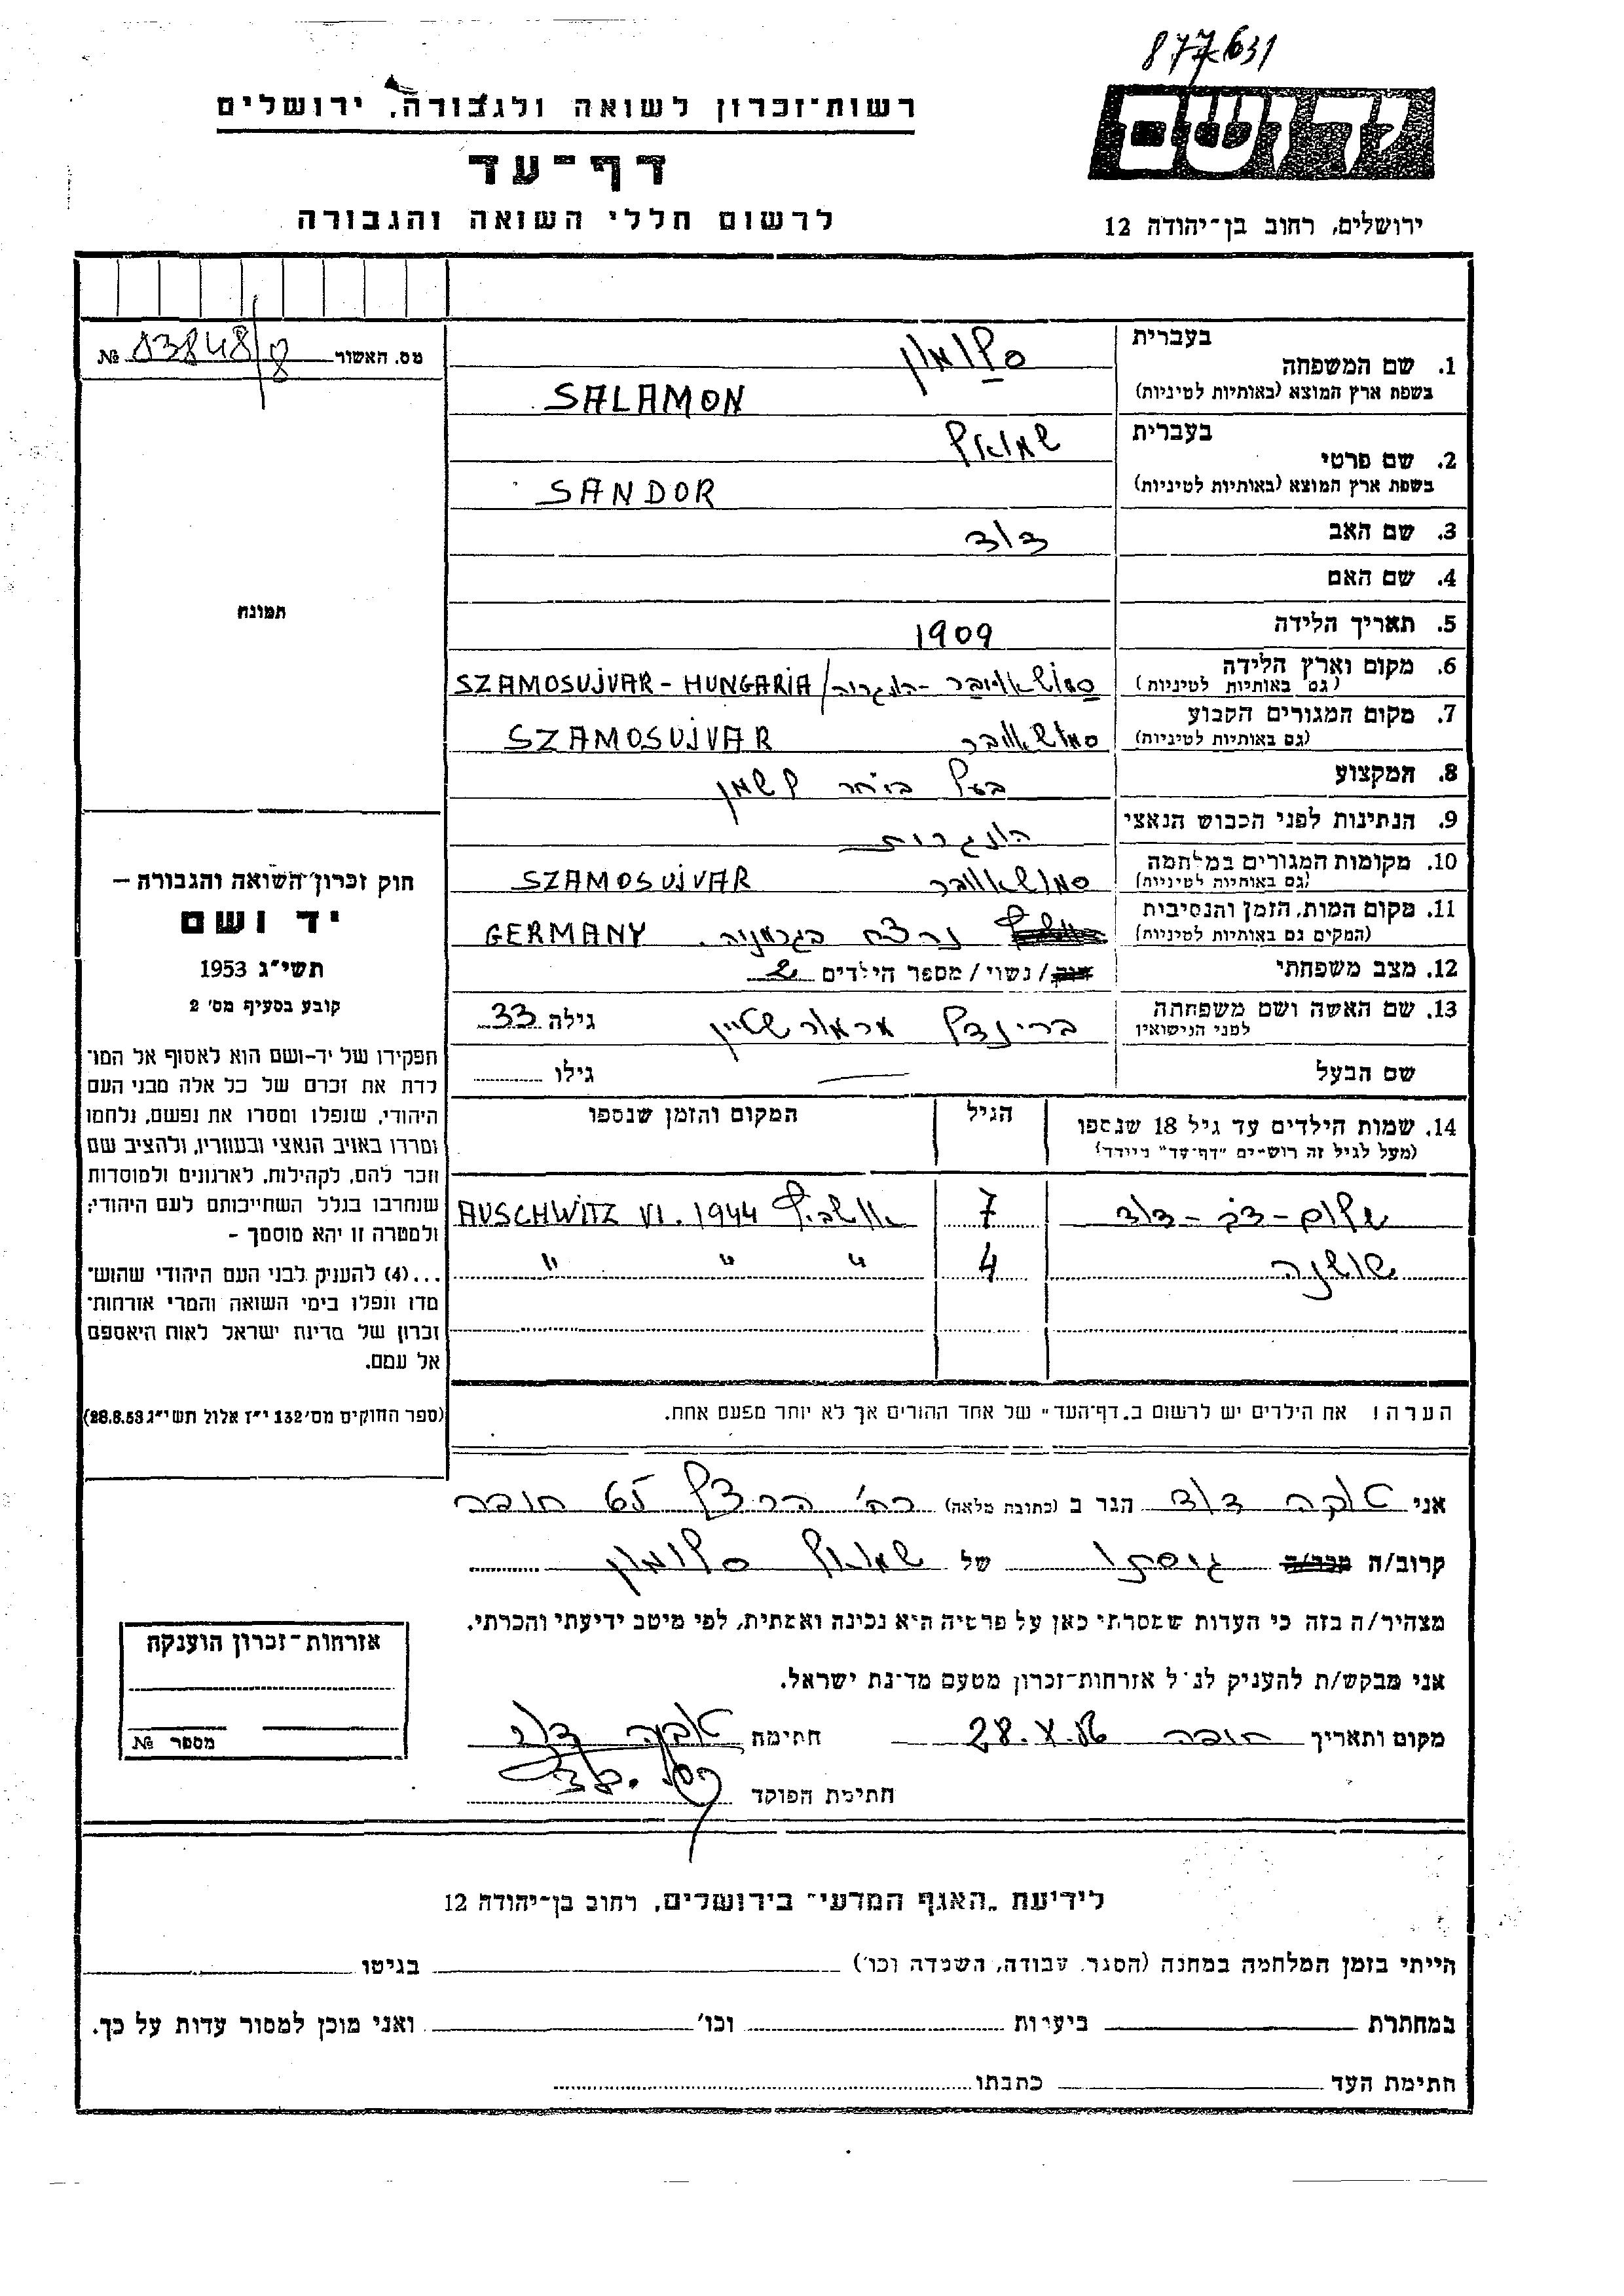 877631
רשות־זכרון לשואה ולגבורה, ירושלים
יד ושם
דף־עד
לרשום חללי השואה והגבורה
ירושלים, רחוב בן־יהודה 12
מס. האשור № 03848/8
1. שם המשפחה
בעברית סלומון
בשפת ארץ המוצא (באותיות לטיניות) SALAMON
2. שם פרטי
בעברית שמואל
בשפת ארץ המוצא (באותיות לטיניות) SANDOR
3. שם האב דוד
4. שם האם
5. תאריך הלידה 1909
6. מקום וארץ הלידה (גם באותיות לטיניות) סמושאויבר - הונגריה / SZAMOSUJVAR - HUNGARIA
7. מקום המגורים הקבוע (גם באותיות לטיניות) סמושאויבר SZAMOSUJVAR
8. המקצוע בעל בי"חר לשמן
9. הנתינות לפני הכבוש הנאצי הונגרית
10. מקומות המגורים במלחמה (גם באותיות לטיניות) סמושאויבר SZAMOSUJVAR
11. מקום המות, הזמן והנסיבות (המקום גם באותיות לטיניות) נרצח בגרמניה. GERMANY
12. מצב משפחתי רווק / נשוי / מספר הילדים 2
13. שם האשה ושם משפחתה לפני הנישואין ברינדל מרמורשטיין גילה 33
שם הבעל גילו
14. שמות הילדים עד גיל 18 שנספו (מעל לגיל זה רושמים "דף־עד" מיוחד) הגיל המקום והזמן שנספו
שלום - דב - דוד 7 אושביץ AUSCHWITZ VI. 1944
שושנה 4 " " "
הערה! את הילדים יש לרשום ב„דף־העד" של אחד ההורים אך לא יותר מפעם אחת.
תמונה
חוק זכרון־השואה והגבורה –
יד ושם
תשי"ג 1953
קובע בסעיף מס' 2
תפקידו של יד-ושם הוא לאסוף אל המו־
לדת את זכרם של כל אלה מבני העם
היהודי, שנפלו ומסרו את נפשם, נלחמו
ומרדו באויב הנאצי ובעוזריו, ולהציב שם
וזכר להם, לקהילות, לארגונים ולמוסדות
שנחרבו בגלל השתייכותם לעם היהודי;
ולמטרה זו יהא מוסמך -
...(4) להעניק לבני העם היהודי שהוש־
מדו ונפלו בימי השואה והמרי אזרחות־
זכרון של מדינת ישראל לאות היאספם
אל עמם.
(ספר החוקים מס' 132 י"ז אלול תשי"ג 28.8.53)
אני דוד הגר ב (כתובת מלאה) רח' הרצל 65 חדרה
קרוב/ה מכר/ה גיסתו של שמואל סלומון
מצהיר/ה בזה כי העדות שמסרתי כאן על פרטיה היא נכונה ואמתית, לפי מיטב ידיעתי והכרתי.
אני מבקש/ת להעניק לנ"ל אזרחות־זכרון מטעם מדינת ישראל.
מקום ותאריך חדרה 28.X.86 חתימה
חתימת הפוקד
אזרחות־זכרון הוענקה
מספר №
לידיעת „האגף המדעי" בירושלים, רחוב בן־יהודה 12
הייתי בזמן המלחמה במחנה (הסגר, עבודה, השמדה וכו') בגיטו
במחתרת ביערות וכו' ואני מוכן למסור עדות על כך.
חתימת העד כתבתו